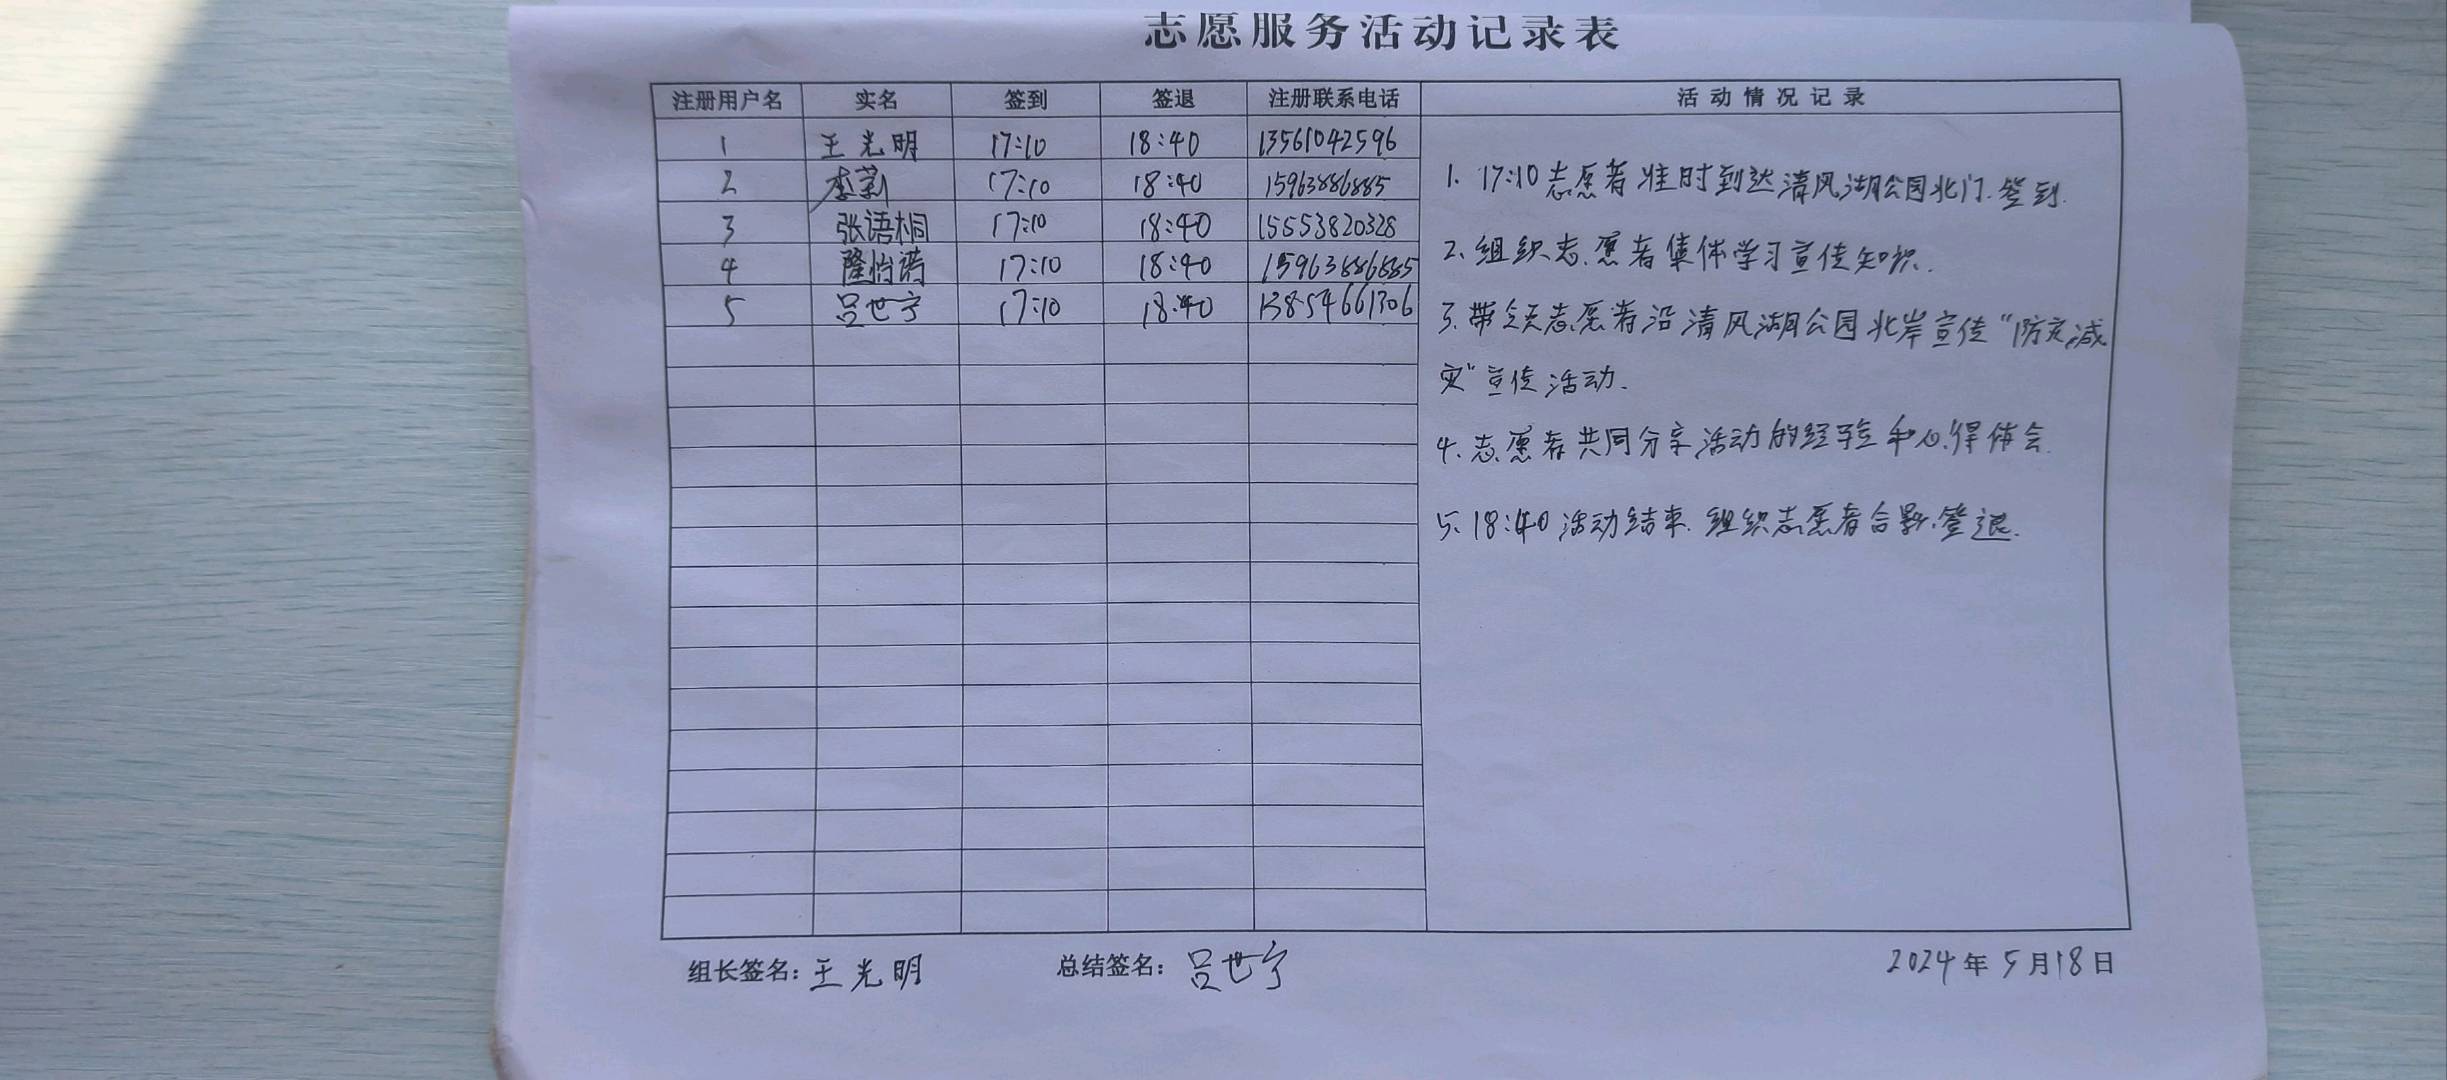 志愿服务活动记录表
注册用户名 实名 签到 签退 注册联系电话 活动情况记录
1 王光明 17:10 18:40 13561042596
2 李莉 17:10 18:40 15963886885
3 张语桐 17:10 18:40 15553820328
4 隆怡诺 17:10 18:40 15963886885
5 吕世宁 17:10 18:40 13854661306
1. 17:10志愿者准时到达清风湖公园北门.签到.
2. 组织志愿者集体学习宣传知识.
3. 带领志愿者沿清风湖公园北岸宣传“防灾减
灾”宣传活动.
4. 志愿者共同分享活动的经验和心得体会.
5. 18:40活动结束.组织志愿者合影.签退.
组长签名: 王光明 总结签名: 吕世宁 2024年5月18日